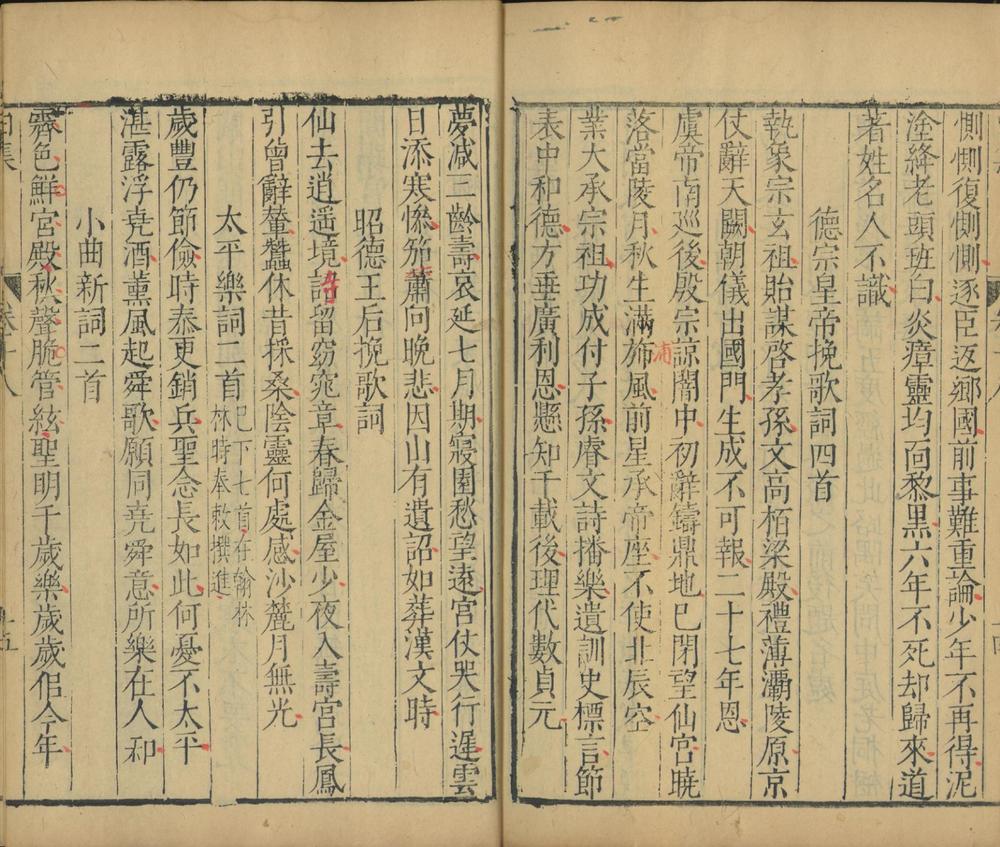 惻惻復惻惻逐臣返鄉國前事難重論少年不再得泥
塗絳老頭班白炎瘴靈均面黎黑六年不死却歸來道
著姓名人不識
德宗皇帝挽歌詞四首
執象宗玄祖貽謀啓孝孫文高栢梁殿禮薄灞陵原京
仗辭天闕朝儀出國門生成不可報二十七年恩
虞帝南巡後殷宗諒闇中初辭鑄鼎地已閉望仙宮曉
落當陵月秋生滿斾風前星承帝座不使北辰空
業大承宗祖功成付子孫睿文詩播樂遺訓史標言節
表中和德方垂廣利恩懸知千載後理代數貞元
夢减三齡壽哀延七月期寢園愁望遠宮仗哭行遲雲
日添寒慘笳蕭向晚悲因山有遺詔如葬漢文時
昭德王后挽歌詞
仙去逍遥境詔留窈窕章春歸金屋少夜入壽宮長鳳
引曾辭輦蠶休昔採桑陰靈何處感沙麓月無光
太平樂詞二首 已下七首在翰林
林時奉敕撰進
歲豐仍節儉時泰更銷兵聖念長如此何憂不太平
湛露浮堯酒薰風起舜歌願同堯舜意所樂在人和
小曲新詞二首
霽色鮮宮殿秋聲脆管絃聖明千歲樂歲歲侣今年